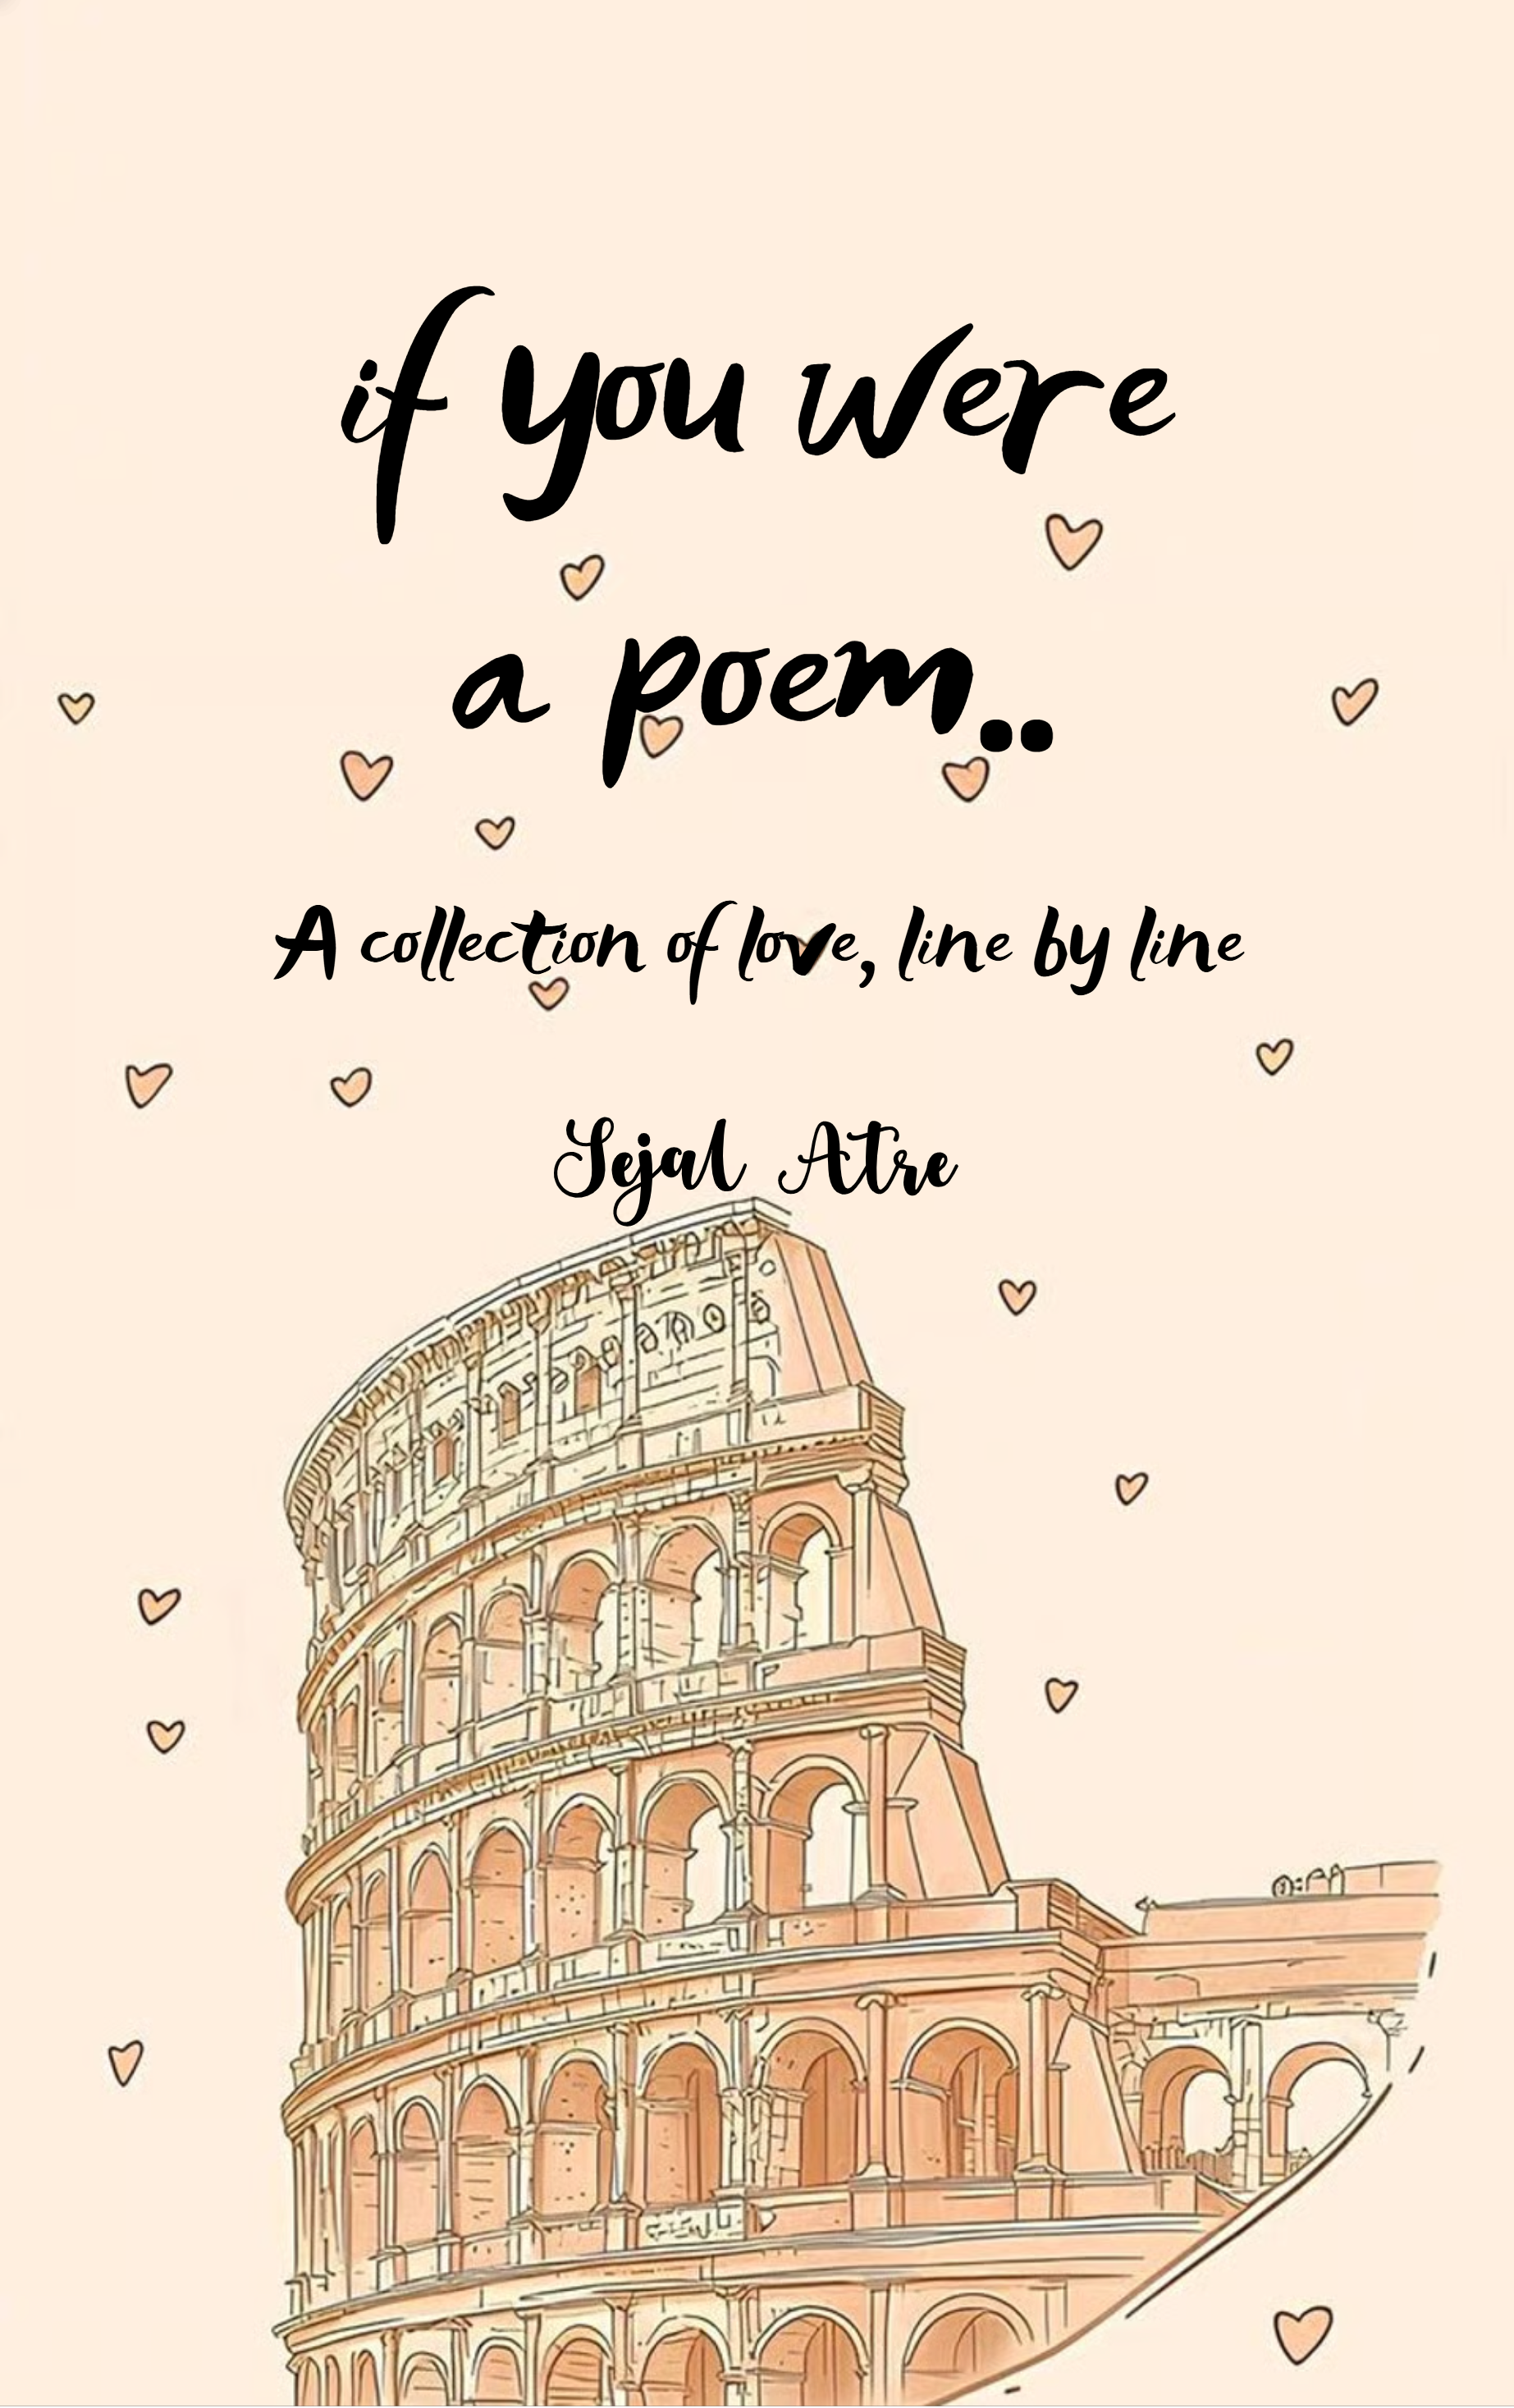 if you were
a poem..
A collection of love, line by line
Sejal Atre